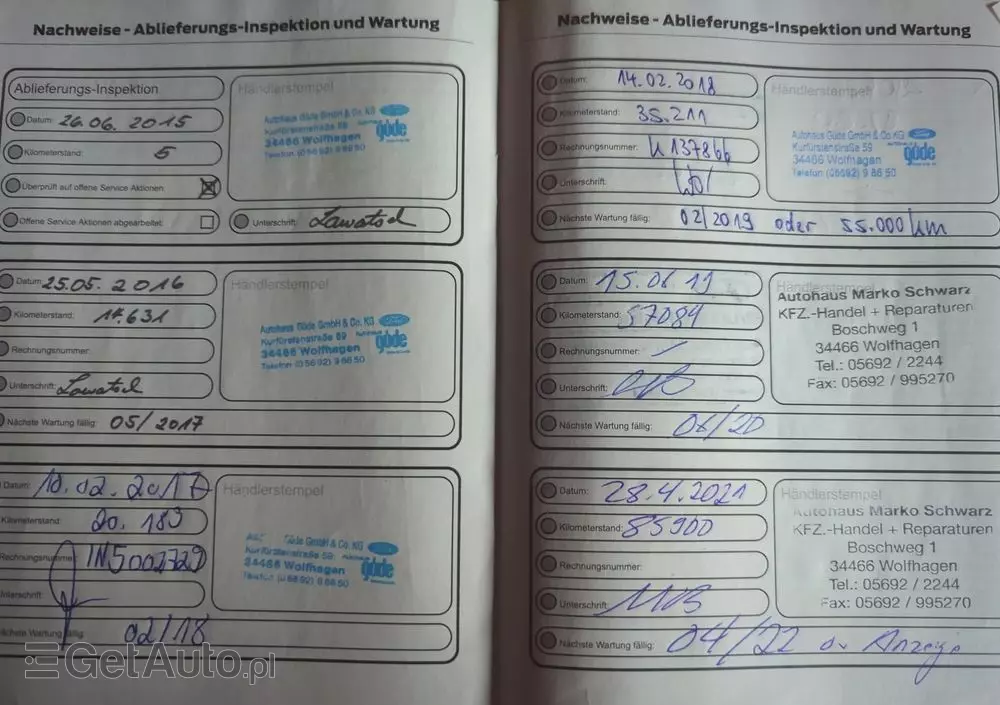 Nachweise - Ablieferungs-Inspektion und Wartung
Ablieferungs-Inspektion
Datum: 26.06.2015
Kilometerstand: 5
Überprüft auf offene Service Aktionen:
Offene Service Aktionen abgearbeitet:
Händlerstempel
Autohaus Güde GmbH & Co. KG
Kurfürstenstraße 59
34466 Wolfhagen
Telefon (05692) 98650
güde
Unterschrift: Lawatsch
Datum: 25.05.2016
Kilometerstand: 14.631
Rechnungsnummer:
Unterschrift: Lawatsch
Nächste Wartung fällig: 05/2017
Händlerstempel
Autohaus Güde GmbH & Co. KG
Kurfürstenstraße 59
34466 Wolfhagen
Telefon (05692) 98650
güde
Datum: 10.02.2017
Kilometerstand: 20.183
Rechnungsnummer: IN5002729
Unterschrift:
Nächste Wartung fällig: 02/18
Händlerstempel
Güde GmbH & Co. KG
Kurfürstenstraße 59
34466 Wolfhagen
Telefon (05692) 98650
güde
GetAuto.pl
Nachweise - Ablieferungs-Inspektion und Wartung
Datum: 14.02.2018
Kilometerstand: 35.211
Rechnungsnummer:
Unterschrift:
Nächste Wartung fällig: 02/2019 oder 55.000 km
Händlerstempel
Autohaus Güde GmbH & Co. KG
Kurfürstenstraße 59
34466 Wolfhagen
Telefon (05692) 98650
güde
Datum: 15.06.19
Kilometerstand: 57084
Rechnungsnummer: –
Unterschrift:
Nächste Wartung fällig: 06/20
Händlerstempel
Autohaus Marko Schwarz
KFZ.-Handel + Reparaturen
Boschweg 1
34466 Wolfhagen
Tel.: 05692 / 2244
Fax: 05692 / 995270
Datum: 28.4.2021
Kilometerstand: 85900
Rechnungsnummer:
Unterschrift:
Nächste Wartung fällig: 04/22 o. Anzeige
Händlerstempel
Autohaus Marko Schwarz
KFZ.-Handel + Reparaturen
Boschweg 1
34466 Wolfhagen
Tel.: 05692 / 2244
Fax: 05692 / 995270